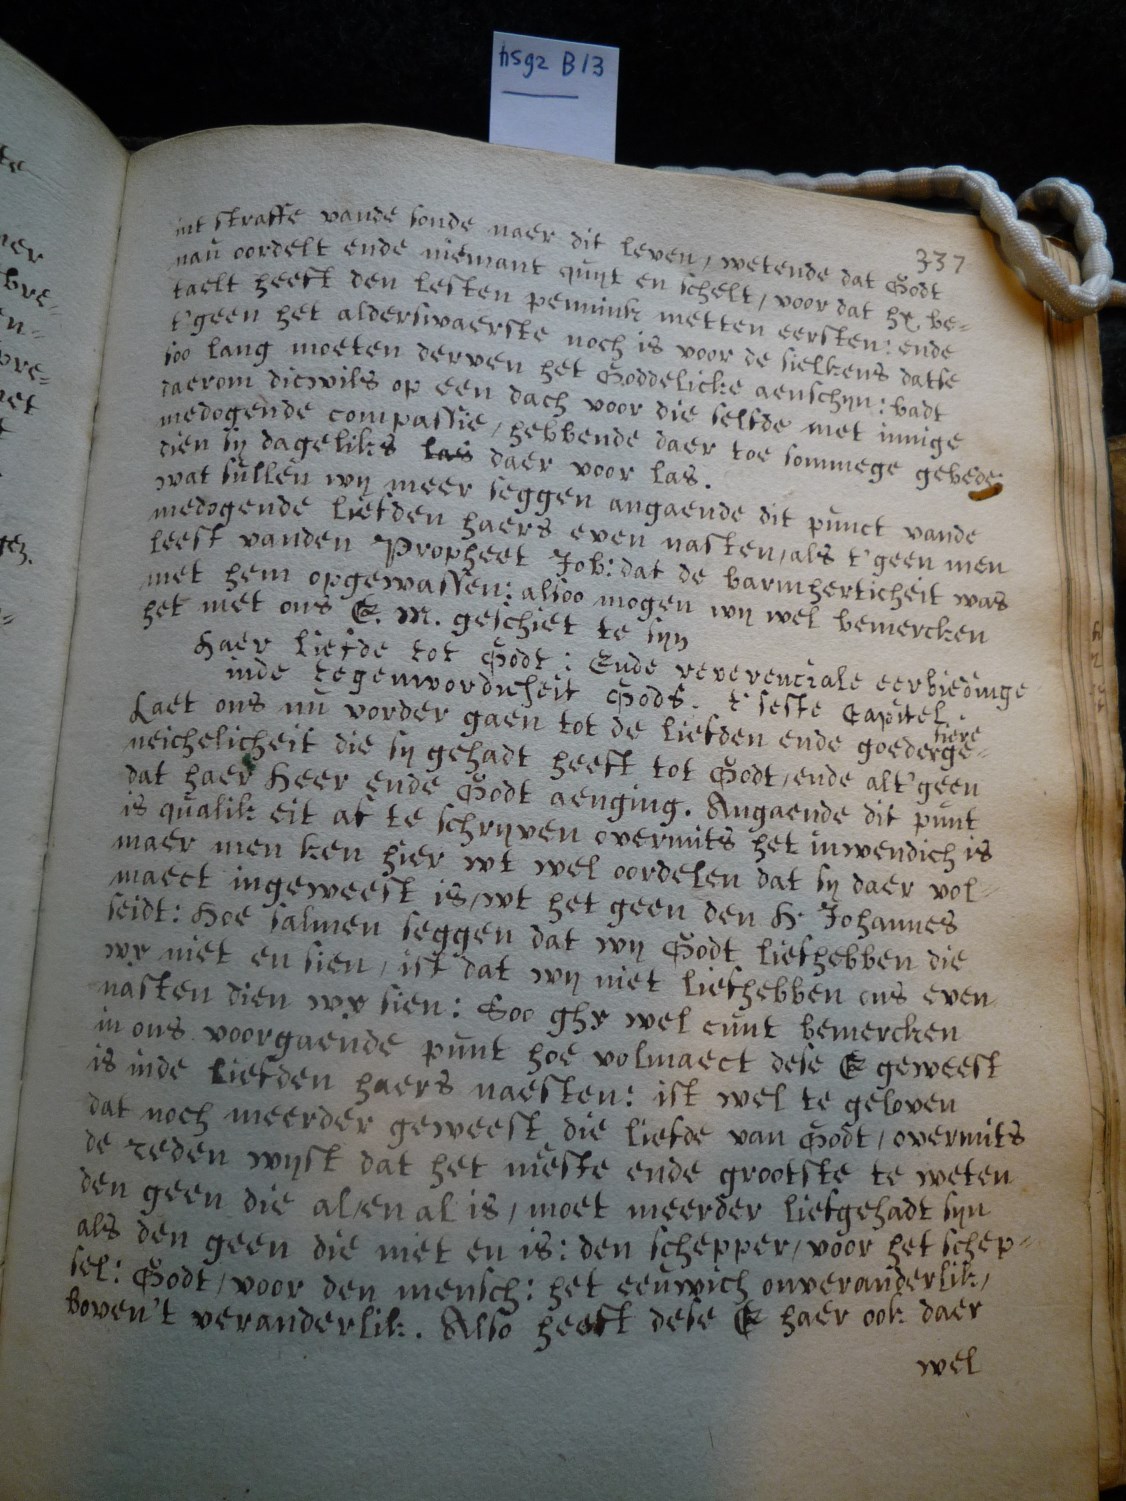 hsg2 B13
337
int straffe vande sonde naer dit leven, wetende dat Godt
nau oordelt ende niemant quijt en schelt, voor dat hy be=
taelt heeft den lesten pennink metten eersten: ende
t'geen het alderswaerste noch is voor de sielkens datse
soo lang moeten derven het Goddelicke aenschyn: badt
daerom diewils op een dach voor die selfde met innige
medogende compassie, hebbende daer toe sommege gebede
dien sij dageliks las daer voor las.
wat sullen wij meer seggen angaende dit punct vande
medogende liefden haers even nasten, als t'geen men
leest vanden Propheet Job: dat de barmherticheit was
met hem opgewassen: alsoo mogen wij wel bemercken
het met ons E. M. geschiet te sijn
Haer liefde tot Godt: Ende reverenciale eerbiedinge
inde tegenwordicheit Gods. t'seste Capitel
Laet ons nu vorder gaen tot de liefden ende goeder tiere ge=
neichelicheit die sij gehadt heeft tot Godt, ende alt'geen
dat haer Heer ende Godt aenging. Angaende dit punt
is qualik eit af te schrijven overmits het inwendich is
maer men ken hier wt wel oordelen dat sij daer vol=
maect ingeweest is, wt het geen den H. Johannes
seidt: Hoe salmen seggen dat wij Godt liefhebben die
wy niet en sien, ist dat wij niet liefhebben ons even
nasten dien wy sien: Soo ghy wel cunt bemercken
in ons voorgaende punt hoe volmaect dese E geweest
is inde liefden haers naesten: ist wel te geloven
dat noch meerder geweest die liefde van Godt, overmits
de reden wijst dat het nieste ende grootste te weten
den geen die al, en al is, moet meerder liefgehadt sijn
als den geen die niet en is: den schepper, voor het schep=
sel: Godt, voor den mensch: het eeuwich onveranderlik,
boven't veranderlik. Also heeft dese E haer ook daer
wel